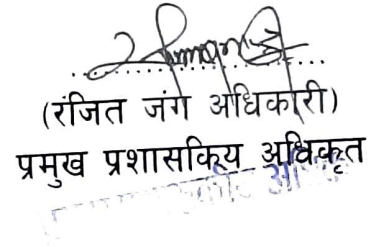 (रंजित जंग अधिकारी)
प्रमुख प्रशासकिय अधिकृत